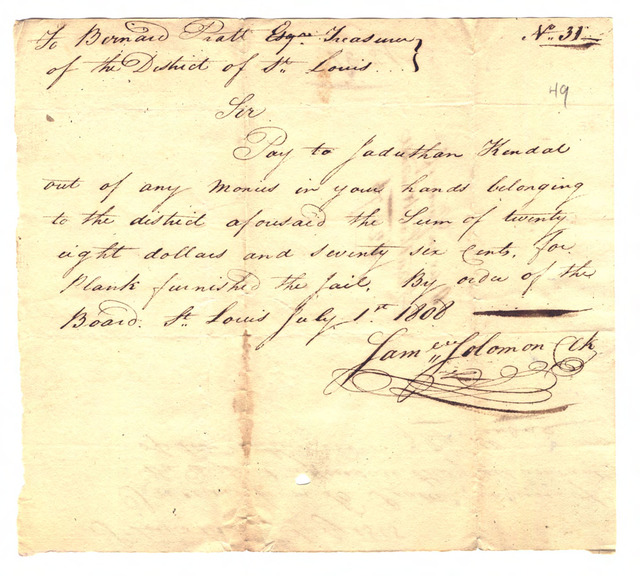 To Bernard Pratt Esqre Treasurer No. 31
of the District of St. Louis
49
Sir
Pay to Jaduthan Kendal
out of any monies in your hands belonging
to the district aforesaid the Sum of twenty
eight dollars and seventy six Cents, for
Plank furnished the Jail. By order of the
Board. St. Louis July 1st 1808
Saml Solomon Ck